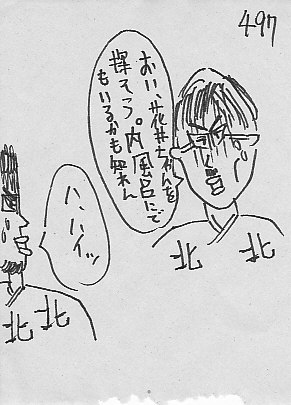 497
おい、花井ちゃんを
探そう。内風呂にで
もいるかも知れん
ハ、ハイッ
北 北
北 北